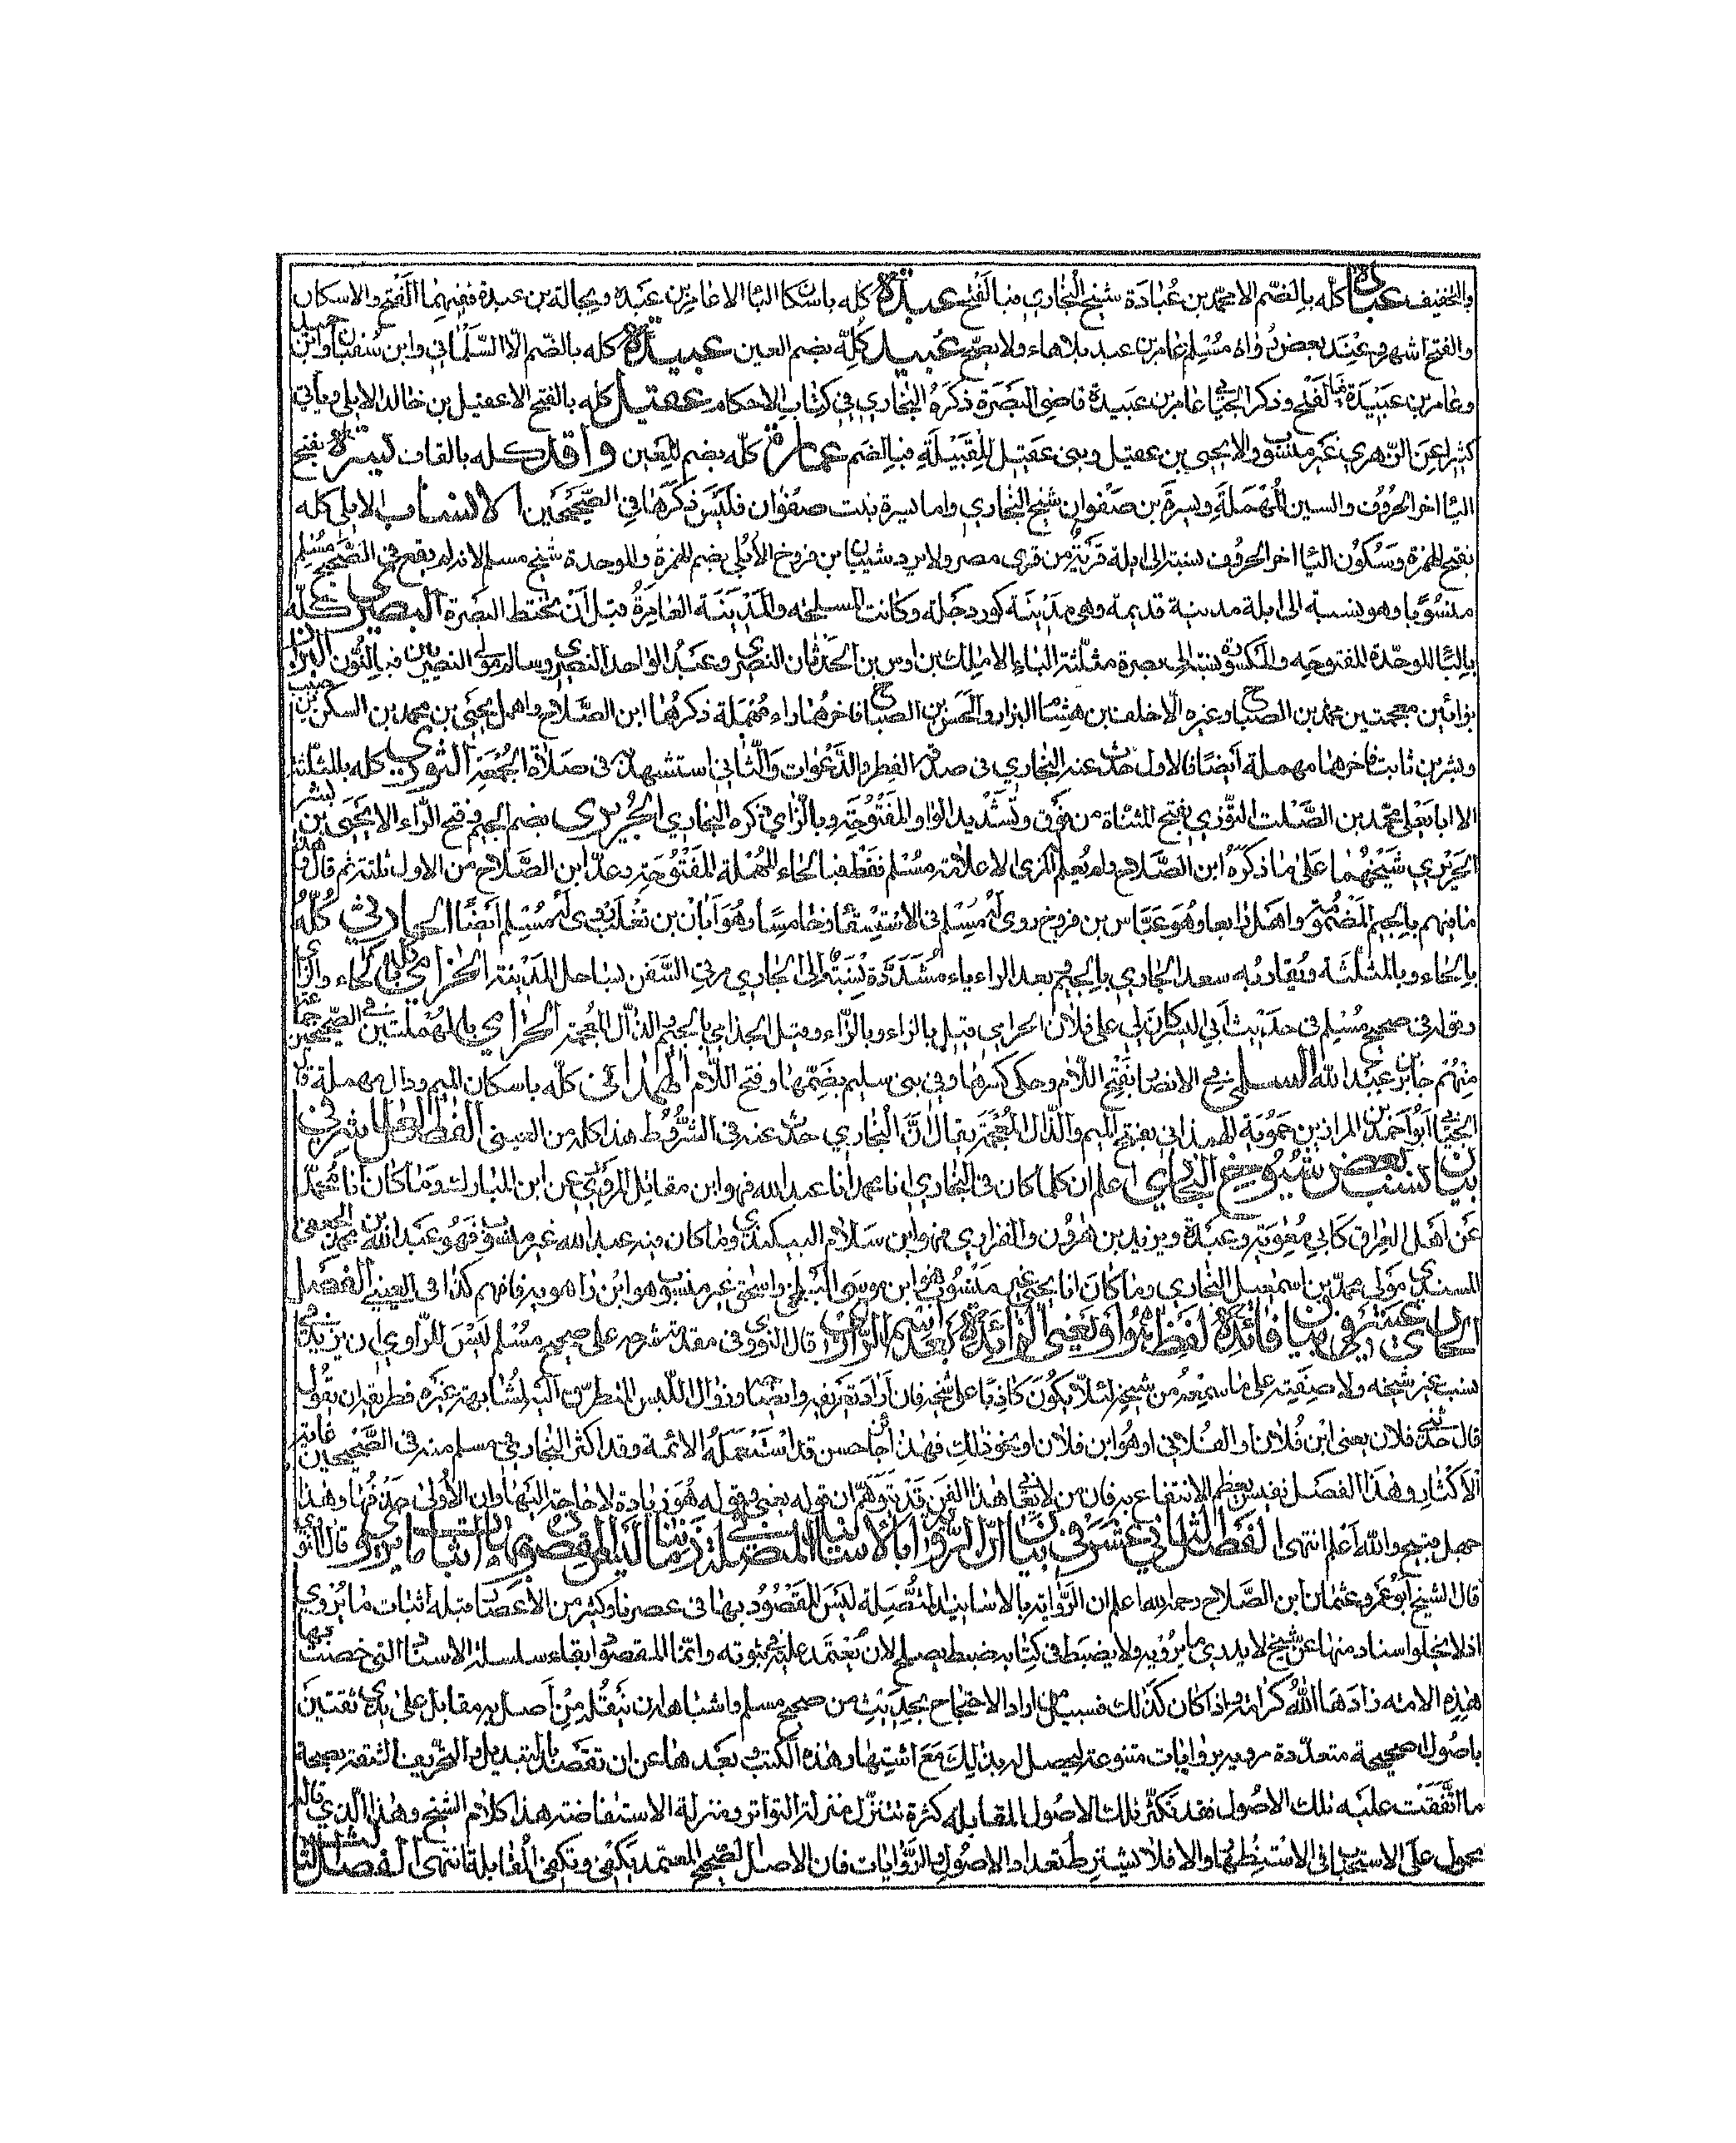 والتخفيف عبادة كله بالضم الا محمد بن عبادة شيخ البخاري فبالفتح عبدة كله باسكان البا الا عامر بن عبدة وبجالة بن عبدة ففيهما الفتح والاسكان
والفتح اشهر وعند بعض رواة مسلم عامر بن عبد بلا هاء ولا يصح عبيد كله بضم العين عبيدة كله بالضم الا السلماني وابن سفيان وابن حميد
وعامر بن عبيدة فبالفتح وذكر الجياني عامر بن عبيدة قاضي البصرة ذكره البخاري في كتاب الاحكام عقيل كله بالفتح الا عقيل بن خالد الايلي وياتي
كثيرا عن الزهري غير منسوب والا يحيى بن عقيل وبني عقيل للقبيلة فبالضم عمارة كله بضم العين واقد كله بالقاف يسرة بفتح
اليا اخر الحروف والسين المهملة ويسرة بن صفوان شيخ البخاري واما بسرة بنت صفوان فليس ذكرها في الصحيحين الانساب الايلي كله
بفتح الهمزة وسكون اليا اخر الحروف نسبة الى ايلة قرية من قرى مصر ولا يرد شيبان بن فروخ الابلي بضم الهمزة والموحدة شيخ مسلم لانه لم يقع في صحيح مسلم
منسوبا وهو نسبة الى ابلة مدينة قديمة وهي مدينة كور دجلة وكانت المسلحة والمدينة العامرة قبل ان تختط البصرة البصري كله
بالبا الموحدة المفتوحة والمكسورة نسبة الى بصرة مثلثة الباء الا مالك بن اوس بن الحدثان النصري وعبد الواحد النصري وسالم مولى النصريين فبالنون البزاز
بزائين معجمتين محمد بن الصباح وغيره الا خلف بن هشام البزار والحسن بن الصباح فاخرهما راء مهملة ذكرهما ابن الصلاح واهمل يحيى بن محمد بن السكن بن حبيب
وبشر بن ثابت فاخرهما مهملة ايضا فالاول حدث عنه البخاري في صدقة الفطر والدعوات والثاني استشهد به في صلاة الجمعة الثوري كله بالمثلثة
الا ابا يعلى محمد بن الصلت التوزي بفتح المثناة من فوق وتشديد الواو المفتوحة وبالزاي ذكره البخاري الجريري بضم الجيم وفتح الراء الا يحيى بن بشر
الحريري شيخهما على ما ذكره ابن الصلاح ولم يعلم المزي الا علامة مسلم فقط فبا الحاء المهملة المفتوحة وعد ابن الصلاح من الاول ثلثة ثم قال وهذا
ما فيهم بالجيم المضمومة واهمل رابعا وهو عباس بن فروخ روى له مسلم في الاستسقا وخامسا وهو ابان بن تغلب روى له مسلم ايضا الحارثي كله
بالحاء وبالمثلثة ويقاربه سعد الجاري بالجيم وبعد الراء ياء مشددة نسبة الى الجاري مرقى السفن بساحل المدينة الحزامي كله بالحاء والزاي
وقوله في صحيح مسلم في حديث ابي اليسر كان لي على فلان الحرامي قيل بالزاء وبالراء وقيل الجذامي بالجيم والذال المعجمة الحرامي بالمهملتين في الصحيحين جماعة
منهم جابر بن عبد الله السلمي في الانصار بفتح اللام وحكي كسرها وفي بني سليم بضمها وفتح اللام الهمداني كله باسكان الميم ودال مهملة قال
الجياني ابو احمد بن المرار بن حموية الهمذاني بفتح الميم والذال المعجمة يقال ان البخاري حدث عنه في الشروط هذا كله من العيني الفصل العاشر في
بيان نسب بعض شيوخ البخاري اعلم ان كلما كان في البخاري انا محمد انا عبد الله فهو ابن مقاتل المروزي عن ابن المبارك وما كان انا محمد
عن اهل العراق كابي معوية وعبدة ويزيد بن هرون والفزاري فهو ابن سلام البيكندي وما كان فيه عبد الله غير منسوب فهو عبد الله بن محمد الجعفي
المسندي مولى محمد بن اسمعيل البخاري وما كان انا يحيى غير منسوب فهو ابن موسى البلخي واسحق غير منسوب هو ابن راهويه فافهم كذا في العيني الفصل
الحادي عشر في بيان فائدة لفظ هو او يعني الزائدة بعد اسم الراوي قال النووي في مقدمة شرحه على صحيح مسلم ليس للراوي ان يزيد في
نسب غير شيخه ولا صفته على ما سمعه من شيخه لئلا يكون كاذبا على شيخه فان اراد تعريفه وايضاحه وزوال اللبس المتطرق اليه لمشابهة غيره فطريقه ان يقول
قال حدثني فلان يعني ابن فلان او الفلاني او هو ابن فلان او نحو ذلك فهذا جائز حسن قد استعمله الائمة وقد اكثر البخاري ومسلم منه في الصحيحين غاية
الاكثار وهذا الفصل نفيس يعظم الانتفاع به فان من لا يعاني هذا الفن قد يتوهم ان قوله يعني وقوله هو زيادة لا حاجة اليها وان الاولى حذفها وهذا
جهل قبيح والله اعلم انتهى الفصل الثاني عشر في بيان ان الرواية بالاسانيد المتصلة في زماننا ليس المقصود بها اثبات ما يروى قال النووي
قال الشيخ ابو عمرو عثمان ابن الصلاح رحمه الله اعلم ان الرواية بالاسانيد المتصلة ليس المقصود بها في عصرنا وكثير من الاعصار قبله اثبات ما يروى
اذ لا يخلو اسناد منها عن شيخ لا يدري ما يرويه ولا يضبط في كتابه ضبطا يصلح لان يعتمد عليه في ثبوته وانما المقصود ابقاء سلسلة الاسناد التي خصت بها
هذه الامة زادها الله كرامة واذا كان كذلك فسبيل من اراد الاحتجاج بحديث من صحيح مسلم واشباهه ان ينقله من اصل به مقابل على يدي ثقتين
باصول صحيحة متعددة مروية بروايات متنوعة ليحصل له بذلك مع اشتهار هذه الكتب وبعدها عن ان تقصد بالتبديل والتحريف الثقة بصحة
ما اتفقت عليه تلك الاصول فقد تكثر تلك الاصول المقابل به كثرة تتنزل منزلة التواتر ومنزلة الاستفاضة هذا كلام الشيخ وهذا الذي قاله
محمول على الاستحباب في الاستظهار والا فلا يشترط تعداد الاصول والروايات فان الاصل الصحيح المعتمد يكفي وتكفي المقابلة انتهى الفصل الثالث